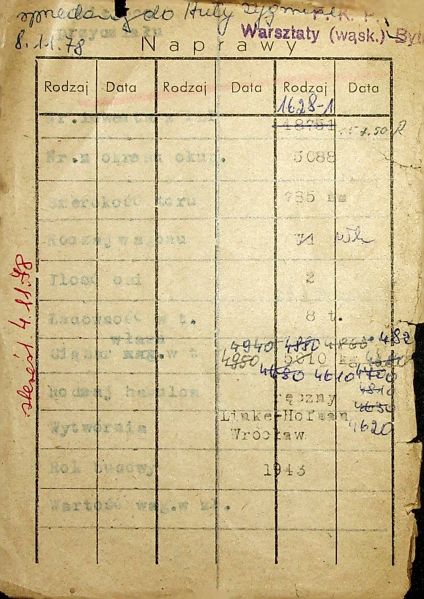 sprzedany do Huty Zygmunt
8.11.78
P. K. P.
Warsztaty (wąsk.) Byt
przydziału
Naprawy
Rodzaj Data Rodzaj Data Rodzaj Data
1628-1
Nr. 18781
Nr. z okresu okup. 5088
Szerokość toru 785 mm
Rodzaj wagonu
Ilość osi 2
Ładowność w t. 8 t.
własa 4940 4880
Ciężar wag. w t 4850 5010 kg
4650 4610 4700
4810
Rodzaj hamulca ręczny 4650
Linke-Hofman 4620
Wytwórnia Wrocław
Rok budowy 1943
Wartość wag. w zł.
skreśl 4.11.78